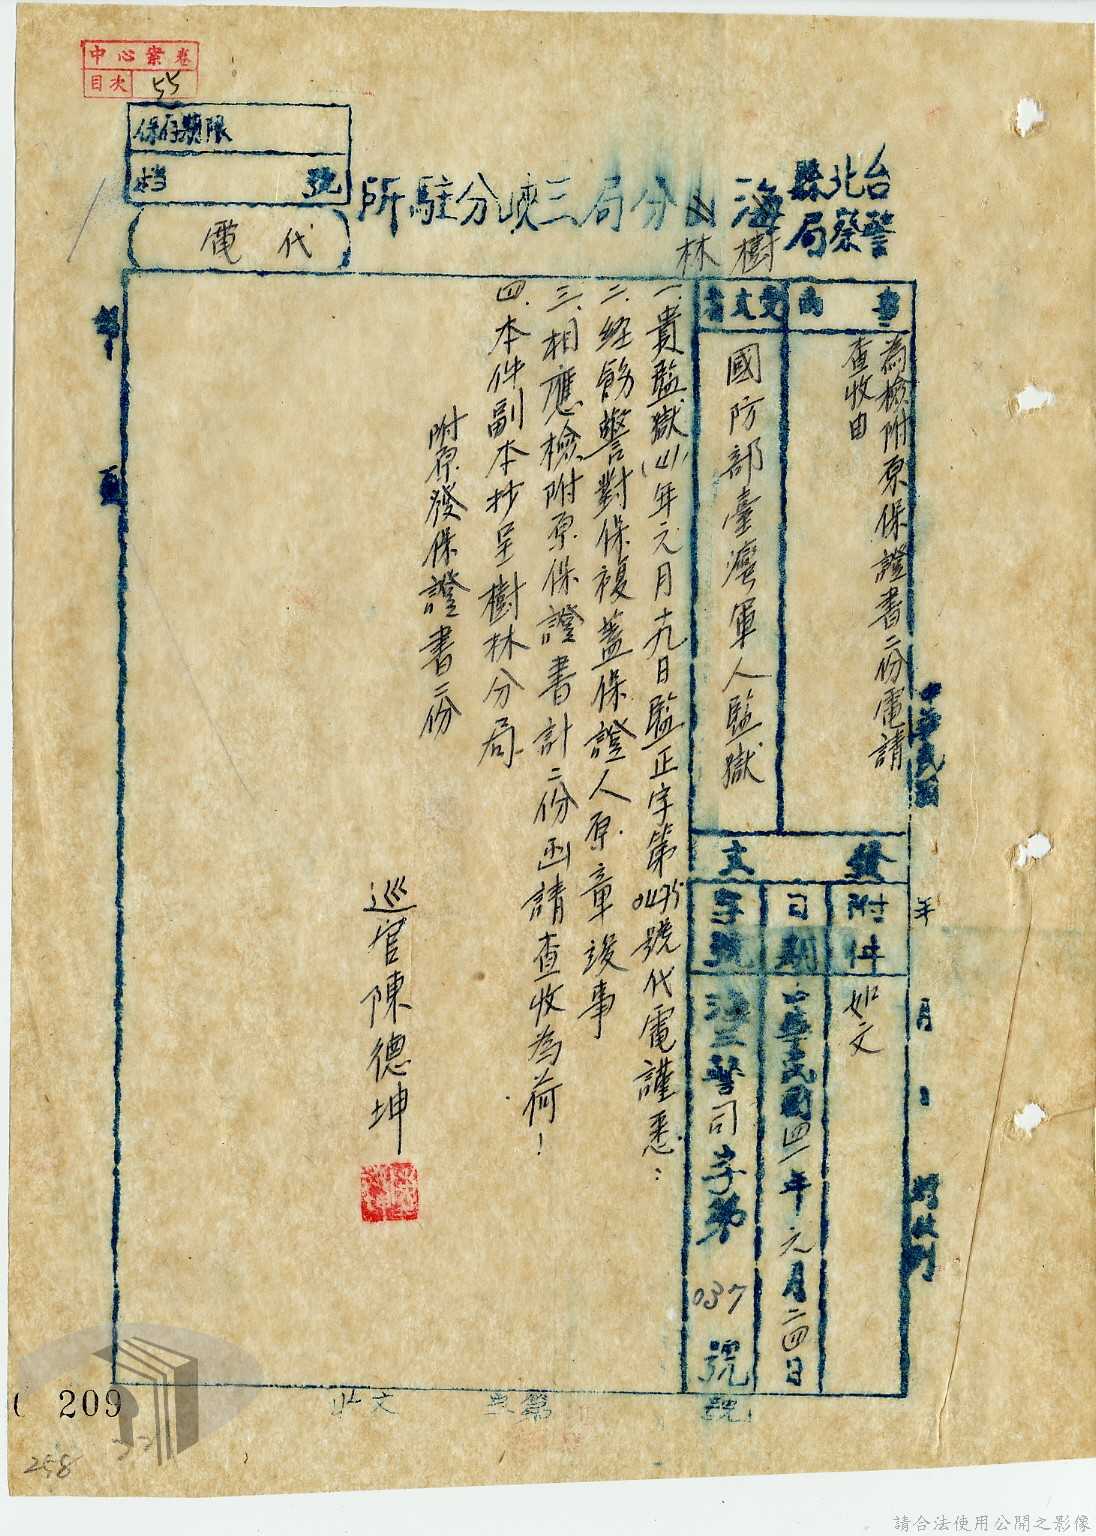 中心案卷
目次 55
保存期限
档號
(代電)
台北縣警察局海山分局三峽分駐所
樹林
事由
為檢附原保證書二份電請
查收由
受文者
國防部臺灣軍人監獄
發文
附件
如文
日期
中華民國四一年元月二四日
字號
海三警司字第037號
一、貴監獄(41)年元月十九日監正字第0475號代電謹悉：
二、經飭警對保複蓋保證人原章竣事
三、相應檢附原保證書計二份函請查收為荷！
四、本件副本抄呈樹林分局
附原發保證書二份
巡官陳德坤
中華民國 年 月 日 時收到
收文 字第 號
209
258
請合法使用公開之影像